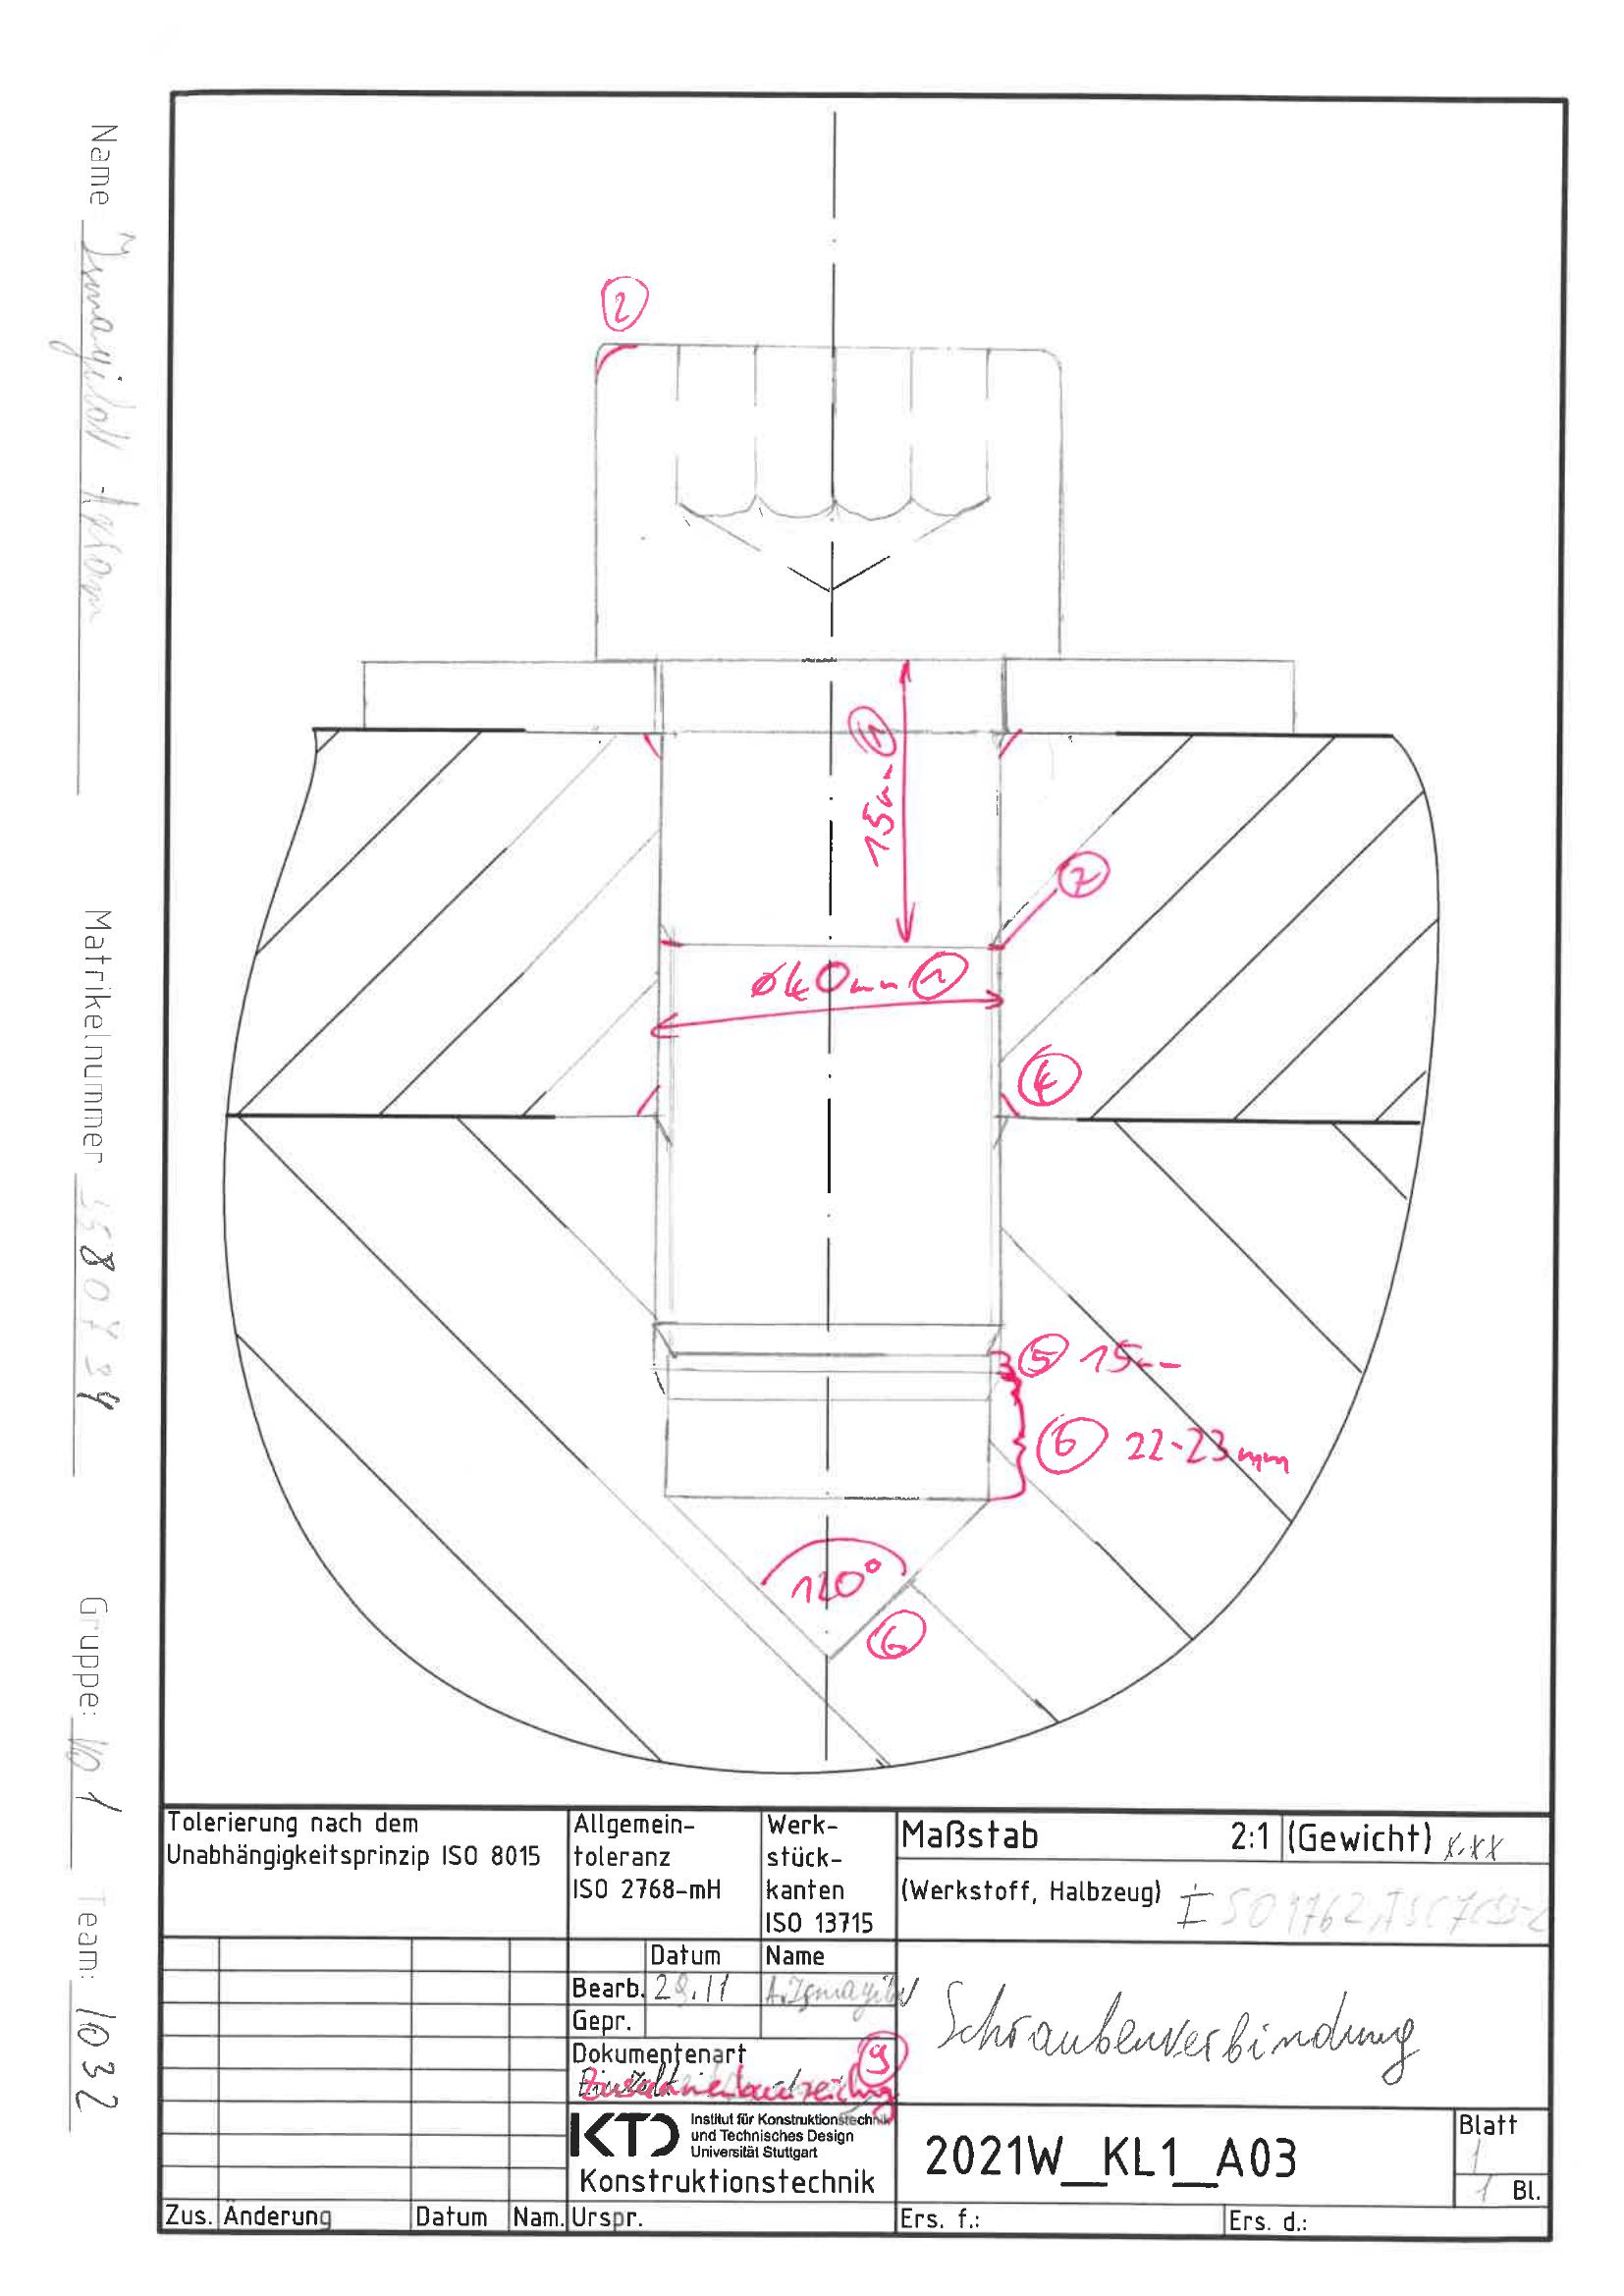 Name
Matrikelnummer
Gruppe: No 1
Team: 1032
2
15mm 1
7
ø40mm 1
4
5 15mm
6 22-23mm
120°
6
Tolerierung nach dem
Unabhängigkeitsprinzip ISO 8015
Allgemein-
toleranz
ISO 2768-mH
Werk-
stück-
kanten
ISO 13715
Maßstab 2:1 (Gewicht) x.xx
(Werkstoff, Halbzeug)
Datum Name
Bearb. 29.11
Gepr.
Dokumentenart 9
Schraubenverbindung
KTD Institut für Konstruktionstechnik
und Technisches Design
Universität Stuttgart
Konstruktionstechnik
2021W_KL1_A03
Blatt
1
1 Bl.
Zus. Änderung Datum Nam. Urspr. Ers. f.: Ers. d.: